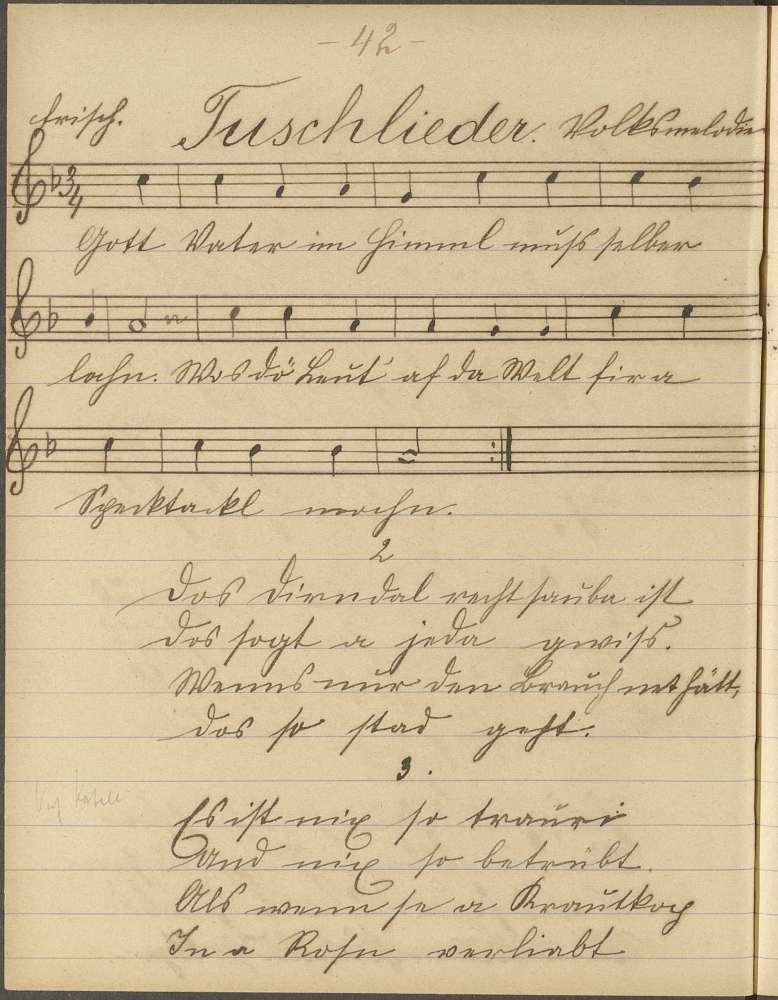 - 42 -
frisch. Tuschlieder. Volksmelodie
3/4
Gott Vater im Himml muß selber
lachn. Wos dö Leut' af da Welt fir a
Specktackl mochn.
2
Dos Dirndal recht sauba ist
dos sogt a jeda gwiß.
Wenns nur den Brauch net hätt,
dos so stad geht.
3.
Es ist nix so trauri
Und nix so betrübt.
Als wenn se a Krautkop
In a Rosn verliabt